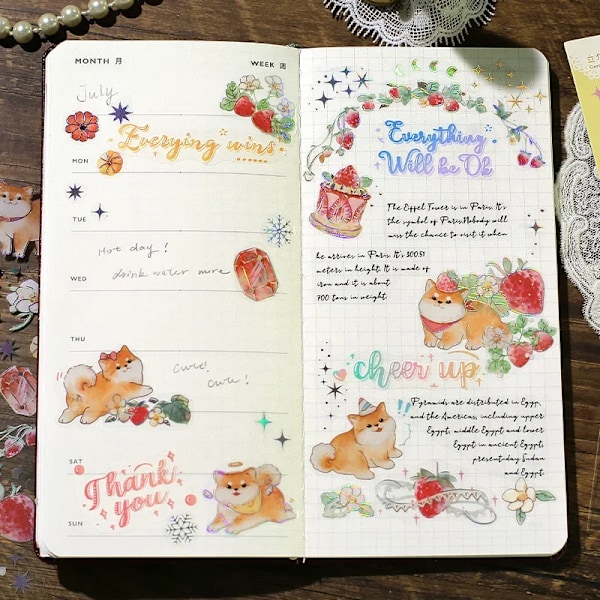 MONTH 月
WEEK 週
July
Everying wins
MON
TUE
Hot day!
WED
drink water more
THU
cute!
cute!
SAT
Thank
you
SUN
Everything
Will be Ok
The Eiffel Tower is in Paris. It's
the symbol of Paris.Nobody will
miss the chance to visit it when
he arrives in Paris. It's 300.51
meters in height. It is made of
iron and it is about
700 tons in weight.
cheer up
Pyramids are distributed in Egyp,
and the Americas, including upper
Egypt, middle Egypt and lower
Egypt in ancient Egypt,
present-day Sudan
and Egypt